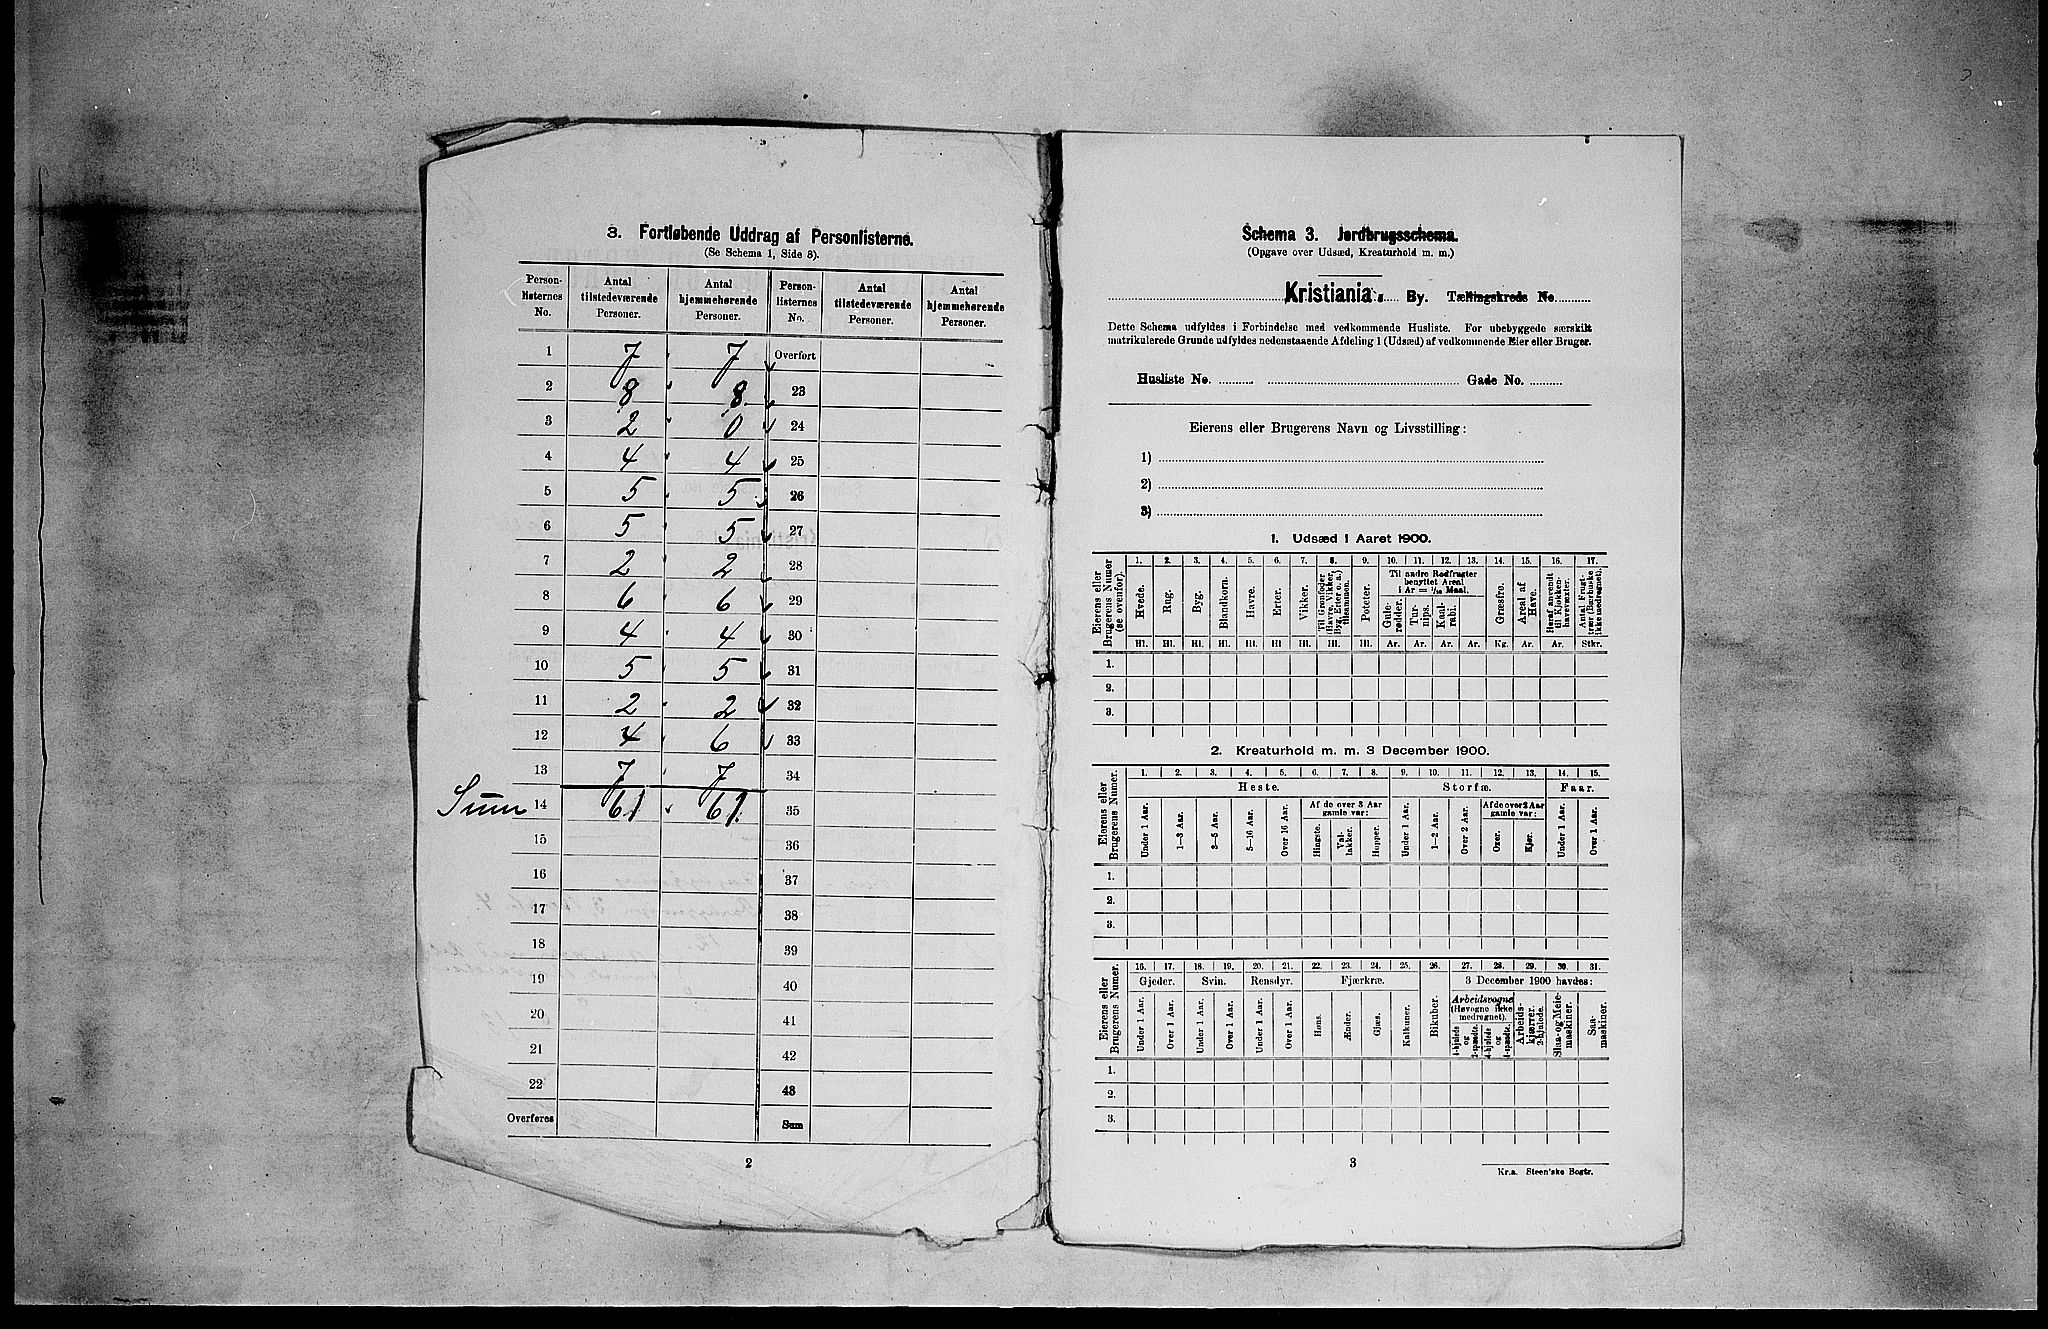 3. Fortløbende Uddrag af Personlisterne.
(Se Schema 1, Side 3).
Person-listernes No. | Antal tilstedeværende Personer. | Antal hjemmehørende Personer. | Person-listernes No. | Antal tilstedeværende Personer. | Antal hjemmehørende Personer.
1 7 7 Overført
2 8 8 23
3 2 0 24
4 4 4 25
5 5 5 26
6 5 5 27
7 2 2 28
8 6 6 29
9 4 4 30
10 5 5 31
11 2 2 32
12 4 6 33
13 7 7 34
Sum 14 61 61 35
15 36
16 37
17 38
18 39
19 40
20 41
21 42
22 43
Overføres Sum
2
Schema 3. Jordbrugsschema.
(Opgave over Udsæd, Kreaturhold m. m.)
Kristiania By. Tællingskreds No.
Dette Schema udfyldes i Forbindelse med vedkommende Husliste. For ubebyggede særskilt
matrikulerede Grunde udfyldes nedenstaaende Afdeling 1 (Udsæd) af vedkommende Eier eller Bruger.
Husliste No. Gade No.
Eierens eller Brugerens Navn og Livsstilling:
1)
2)
3)
1. Udsæd i Aaret 1900.
1. 2. 3. 4. 5. 6. 7. 8. 9. 10. 11. 12. 13. 14. 15. 16. 17.
Eierens eller Brugerens Numer (se ovenfor). | Hvede. | Rug. | Byg. | Blandkorn. | Havre. | Erter. | Vikker. | Til Grønfoder (Havre, Vikker, Byg, Erter o. a.) tilsammen. | Poteter. | Til andre Rodfrugter benyttet Areal i Ar = 1/10 Maal. | Gulerødder. | Turnips. | Kaalrabi. | Græsfrø. | Areal af Have. | Heraf anvendt til Kjøkkenhavevæxter. | Antal Frugttrær (Bærbuske ikke medregnet).
Hl. Hl. Hl. Hl. Hl. Hl Hl. Hl. Hl. Ar. Ar. Ar. Ar. Kg. Ar. Ar. Stkr.
1.
2.
3.
2. Kreaturhold m. m. 3 December 1900.
1. 2. 3. 4. 5. 6. 7. 8. 9. 10. 11. 12. 13. 14. 15.
Eierens eller Brugerens Numer. | Heste. | Storfæ. | Faar.
Af de over 3 Aar gamle var: | Af de over 2 Aar gamle var:
Under 1 Aar. | 1—3 Aar. | 3—5 Aar. | 5—16 Aar. | Over 16 Aar. | Hingste. | Vallakker. | Hopper. | Under 1 Aar. | 1—2 Aar. | Over 2 Aar. | Oxer. | Kjør. | Under 1 Aar. | Over 1 Aar.
1.
2.
3.
16. 17. 18. 19. 20. 21. 22. 23. 24. 25. 26. 27. 28. 29. 30. 31.
Eierens eller Brugerens Numer. | Gjeder. | Svin. | Rensdyr. | Fjærkræ. | 3 December 1900 havdes:
Arbeidsvogne (Høvogne ikke medregnet).
Under 1 Aar. | Over 1 Aar. | Under 1 Aar. | Over 1 Aar. | Under 1 Aar. | Over 1 Aar. | Høns. | Ænder. | Gjæs. | Kalkuner. | Bikuber. | 4-hjulede og 2-spændte. | 4-hjulede og 1-spændte. | Arbeidskjærrer, 2-hjulede. | Slaa- og Meiemaskiner. | Saamaskiner.
1.
2.
3.
3
Kr.a. Steen'ske Bogtr.